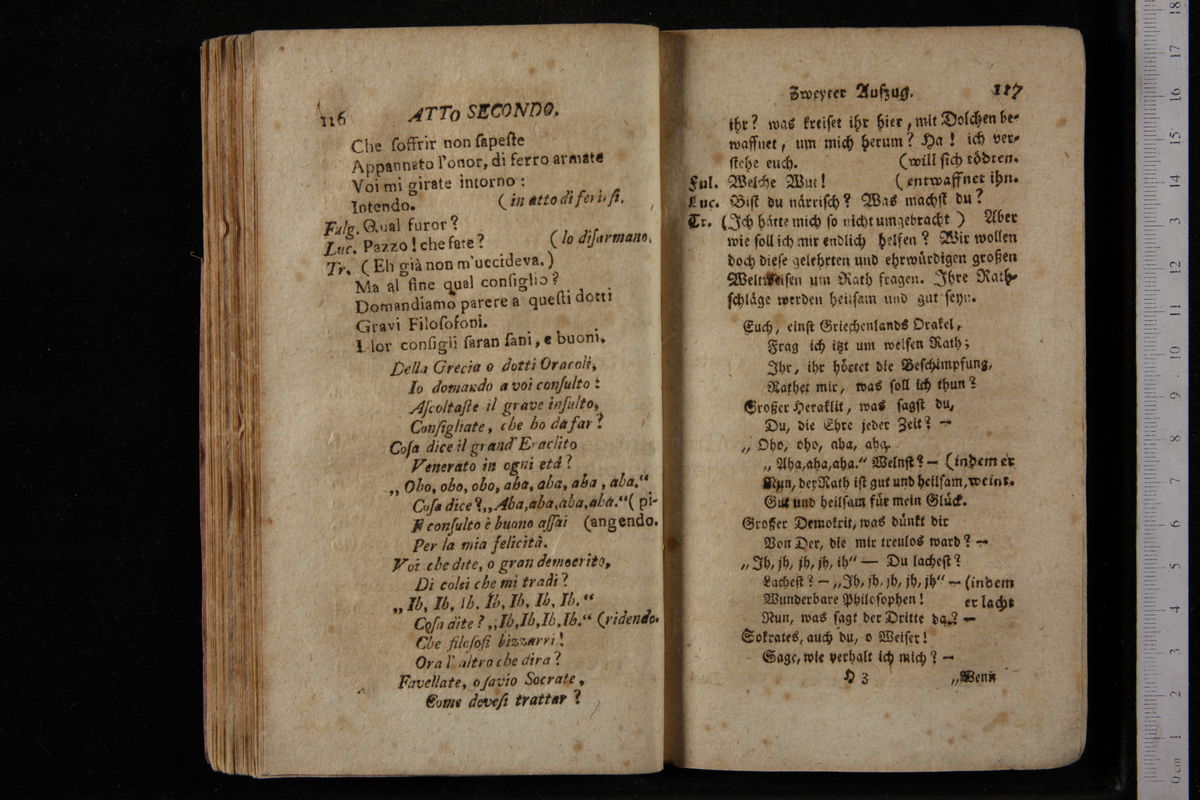 116 ATTO SECONDO.
Che ſoffrir non ſapeſte
Appannato l'onor, di ferro armate
Voi mi girate intorno:
Intendo. (in atto di ferirſi.
Fulg. Qual furor?
Luc. Pazzo! che fate? (lo diſarmano.
Tr. (Eh già non m'uccideva.)
Ma al fine qual conſiglio?
Domandiamo parere a queſti dotti
Gravi Filoſofoni.
I lor conſigli ſaran ſani, e buoni.
Della Grecia o dotti Oracoli,
Io domando a voi conſulto:
Aſcoltaſte il grave inſulto,
Conſigliate, che ho da far?
Coſa dice il grand' Eraclito
Venerato in ogni età?
„ Oho, oho, oho, aha, aha, aha, aha."
Coſa dice? „Aha, aha, aha, aha." (pi-
Il conſulto è buono aſſai (angendo.
Per la mia felicità.
Voi che dite, o gran democrito,
Di colei che mi tradì?
„ Ih, Ih, Ih, Ih, Ih, Ih, Ih."
Coſa dite? „Ih, Ih, Ih, Ih." (ridendo.
Che filoſofi bizzarri!
Ora l'altro che dirà?
Favellate, o ſavio Socrate,
Come deveſi trattar?
Zweyter Aufzug. 117
ihr? was kreiſet ihr hier, mit Dolchen be-
waffnet, um mich herum? Ha! ich ver-
ſtehe euch. (will ſich tödten.
Ful. Welche Wut! (entwaffnet ihn.
Luc. Biſt du närriſch? Was machſt du?
Tr. (Ich hätte mich ſo nicht umgebracht) Aber
wie ſoll ich mir endlich helfen? Wir wollen
doch dieſe gelehrten und ehrwürdigen großen
Weltweiſen um Rath fragen. Ihre Rath-
ſchläge werden heilſam und gut ſeyn.
Euch, einſt Griechenlands Orakel,
Frag ich itzt um weiſen Rath;
Ihr, ihr hörtet die Beſchimpfung,
Rathet mir, was ſoll ich thun?
Großer Heraklit, was ſagſt du,
Du, die Ehre jeder Zeit? —
„ Oho, oho, aha, aha.
„ Aha, aha, aha." Weinſt? — (indem er
Nun, der Rath iſt gut und heilſam, weint.
Gut und heilſam für mein Glück.
Großer Demokrit, was dünkt dir
Von Der, die mir treulos ward? —
„Ih, ih, ih, ih, ih" — Du lacheſt?
Lacheſt? — „Ih, ih, ih, ih, ih" — (indem
Wunderbare Philoſophen! er lacht
Nun, was ſagt der Dritte da? —
Sokrates, auch du, o Weiſer!
Sage, wie verhalt ich mich? —
H 3 „Wenn
0 cm 1 2 3 4 5 6 7 8 9 10 11 12 13 14 15 16 17 18